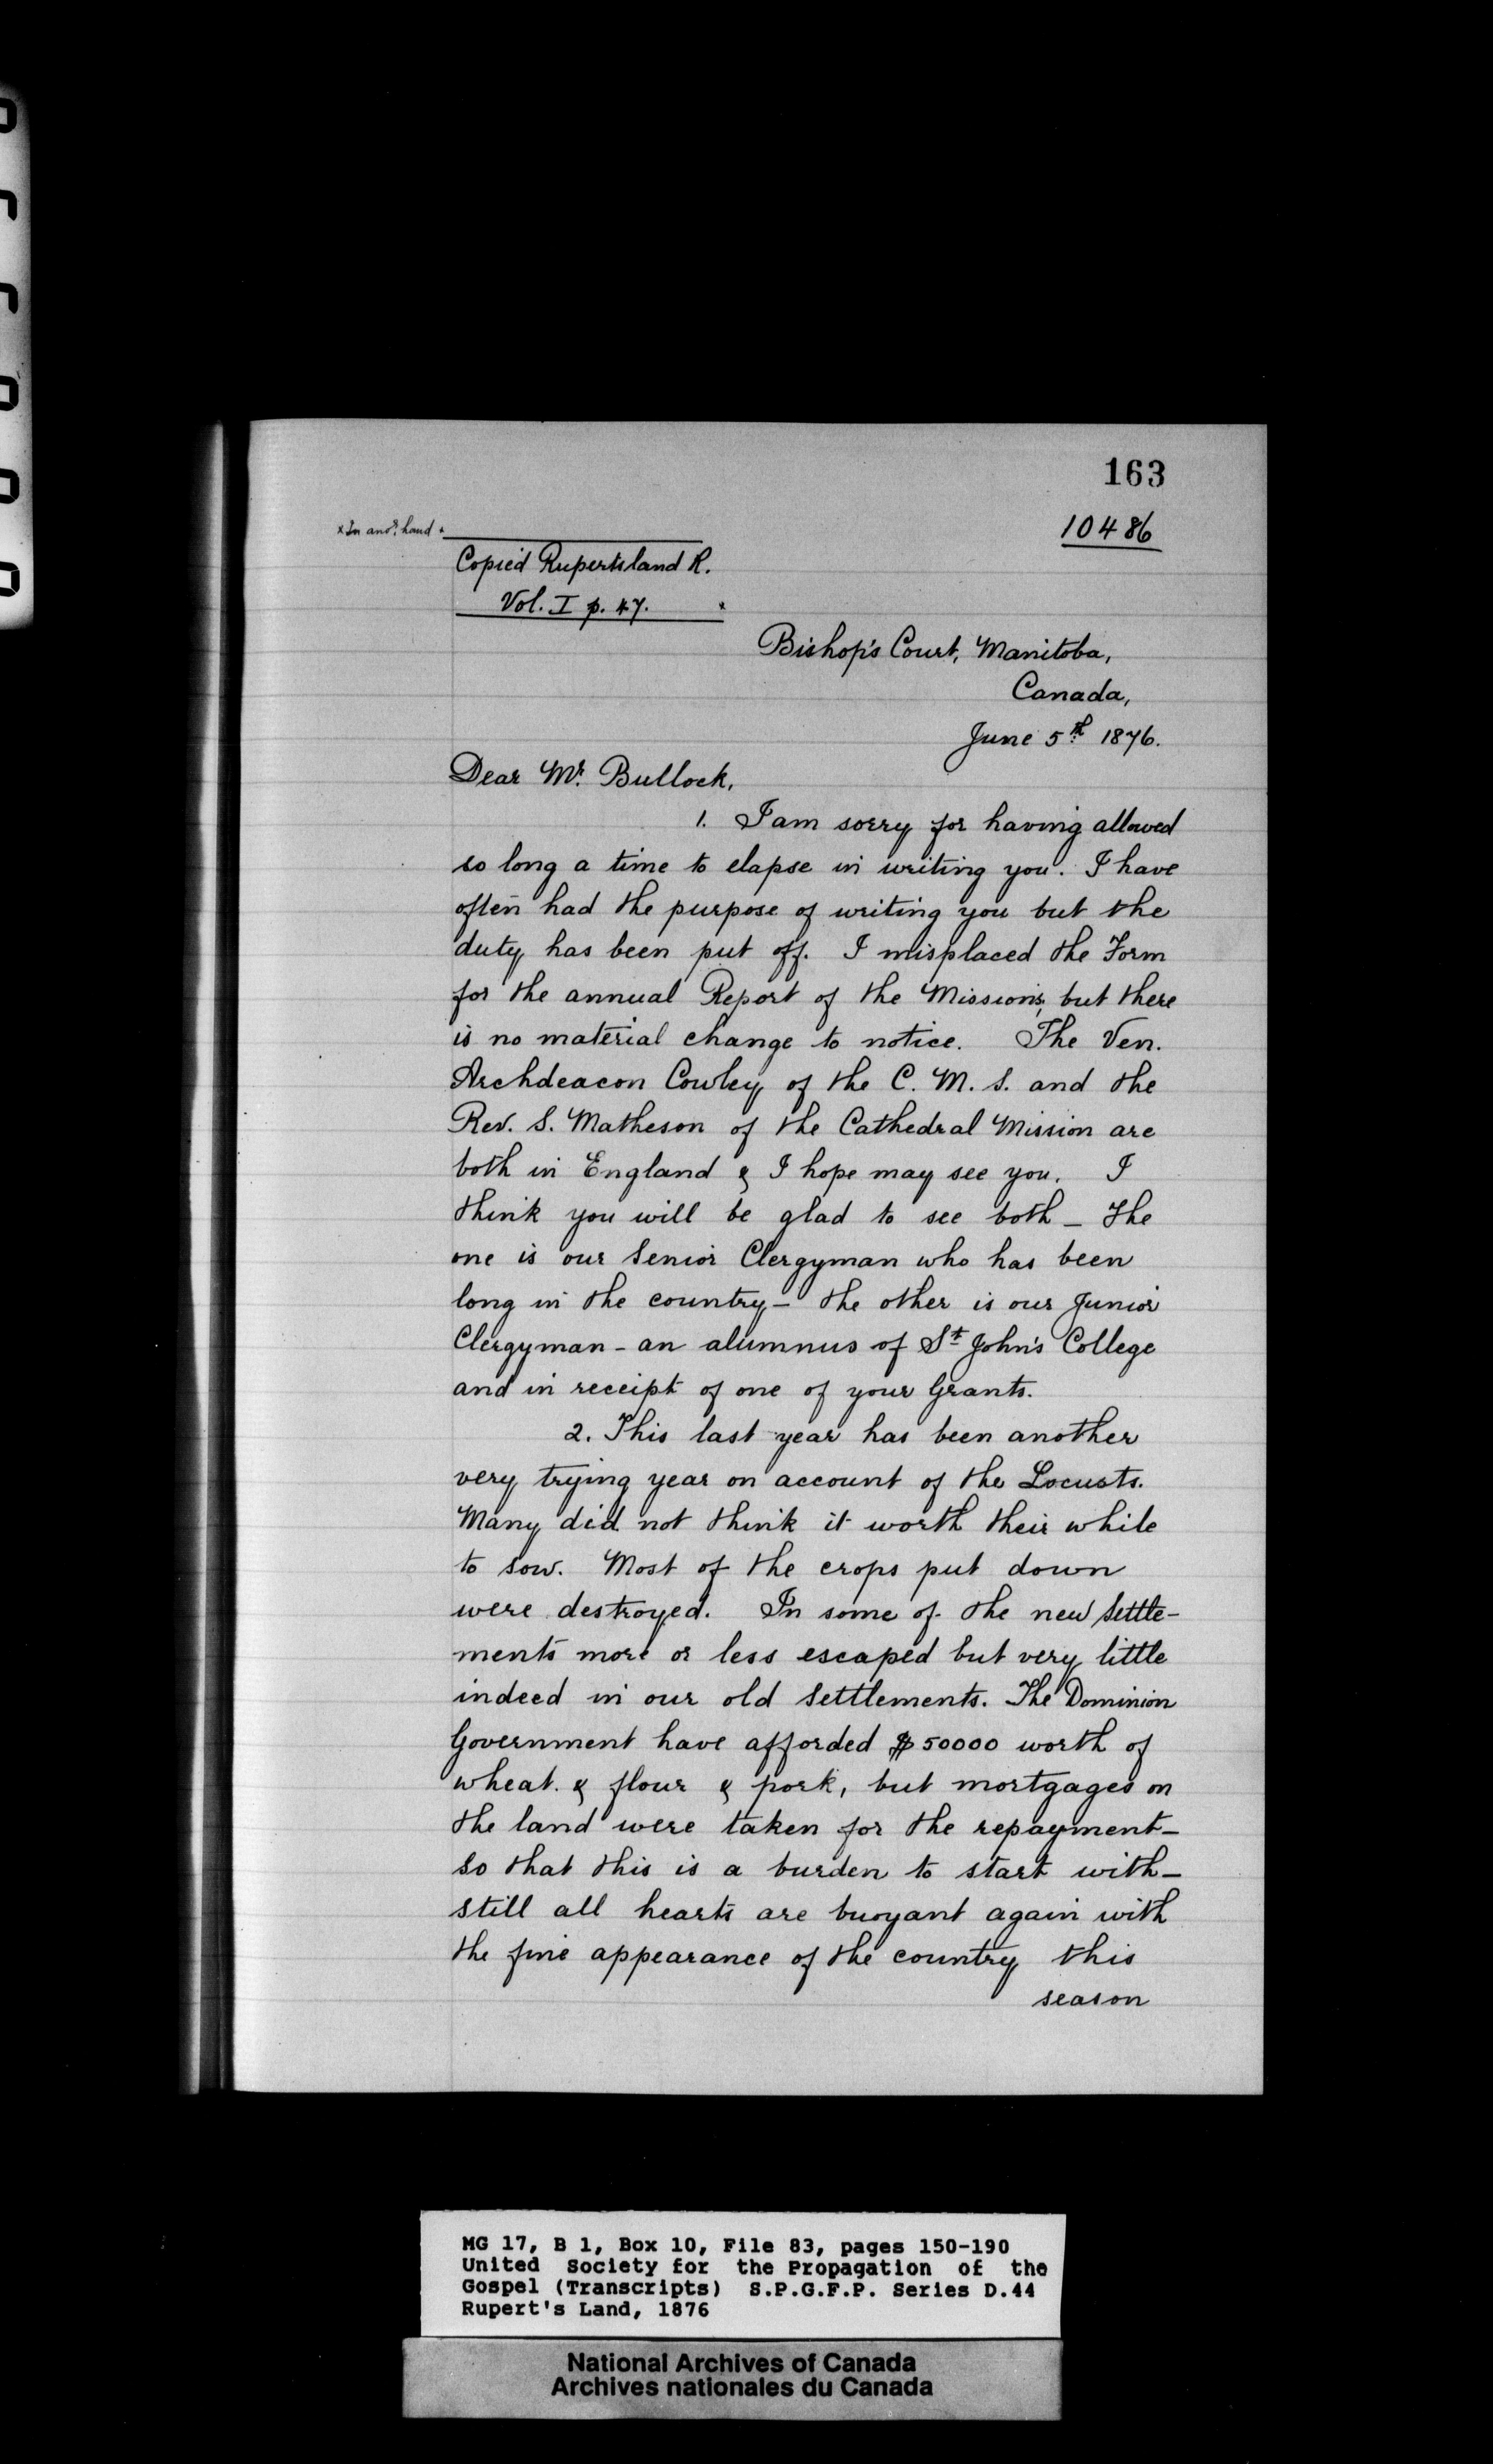 163
10486
x In anor. hand.
Copied Rupertsland R.
Vol. I p. 47. x
Bishop's Court, Manitoba,
Canada,
June 5th 1876.
Dear Mr. Bullock,
1. I am sorry for having allowed
so long a time to elapse in writing you. I have
often had the purpose of writing you but the
duty has been put off. I misplaced the Form
for the annual Report of the Missions, but there
is no material change to notice. The Ven.
Archdeacon Cowley of the C. M. S. and the
Rev. S. Matheson of the Cathedral Mission are
both in England & I hope may see you. I
think you will be glad to see both _ The
one is our Senior Clergyman who has been
long in the country - the other is our Junior
Clergyman - an alumnus of St John's College
and in receipt of one of your Grants.
2. This last year has been another
very trying year on account of the Locusts.
Many did not think it worth their while
to sow. Most of the crops put down
were destroyed. In some of the new Settle-
ments more or less escaped but very little
indeed in our old Settlements. The Dominion
Government have afforded $50000 worth of
wheat. & flour & pork, but mortgages on
the land were taken for the repayment _
so that this is a burden to start with _
still all hearts are buoyant again with
the fine appearance of the country this
season
MG 17, B 1, Box 10, File 83, pages 150-190
United Society for the Propagation of the
Gospel (Transcripts) S.P.G.F.P. Series D.44
Rupert's Land, 1876
National Archives of Canada
Archives nationales du Canada